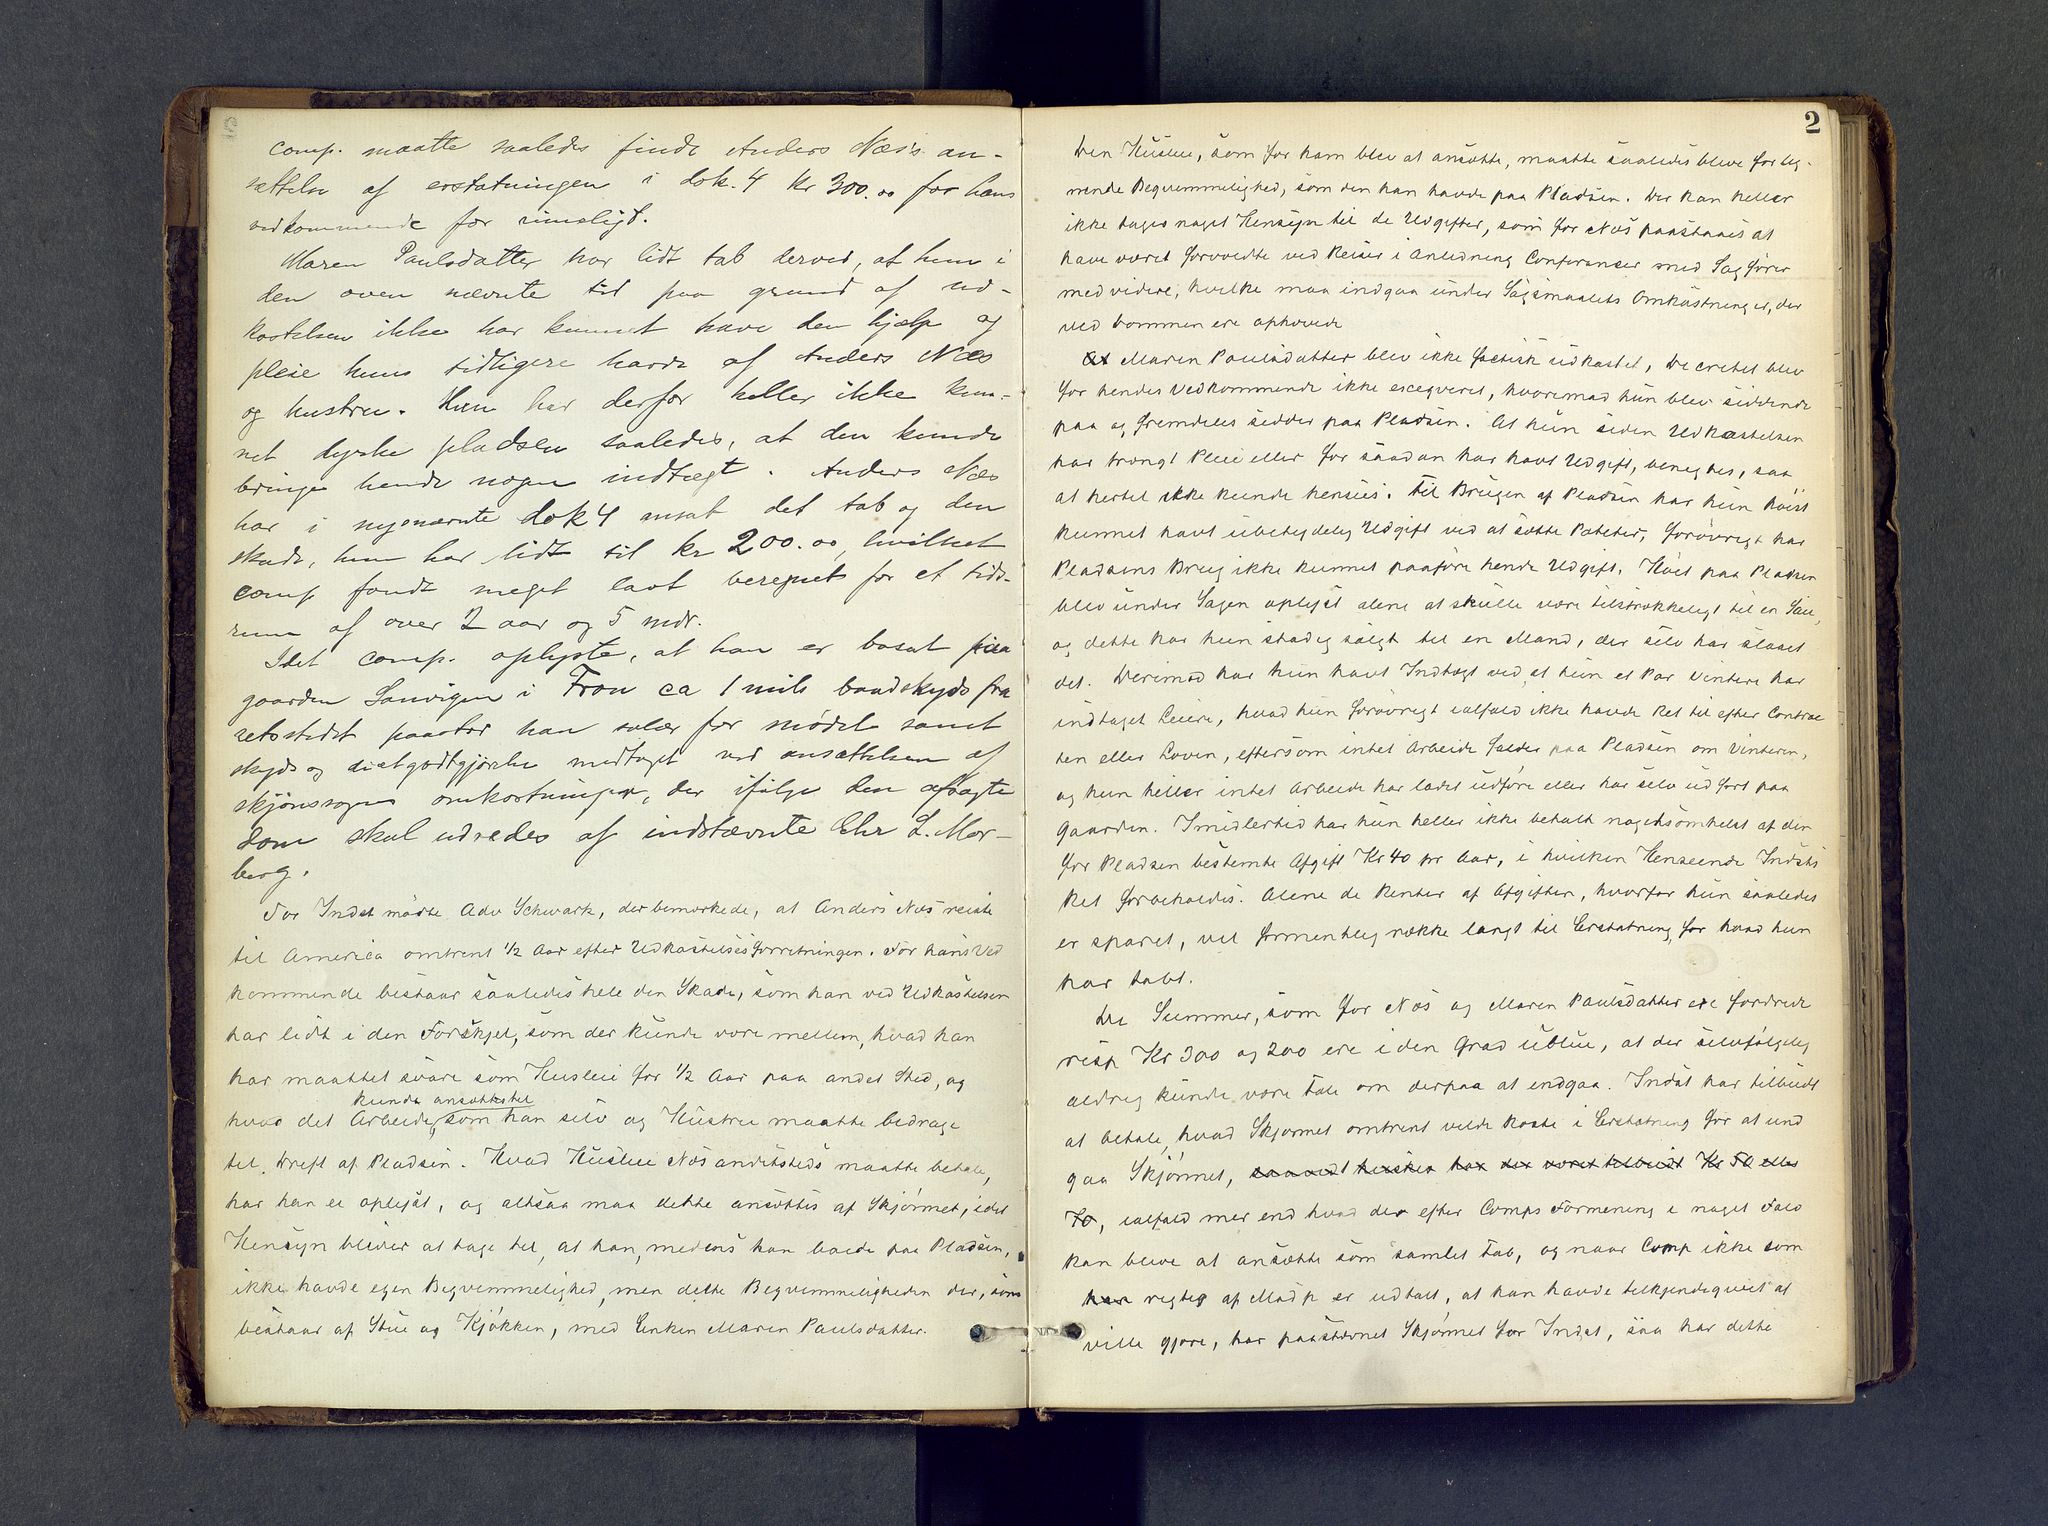 comp. maatte saaledes finde Anders Næs's an-
sættelse af erstatningen i dok. 4 Kr 300.00 for hans
vedkommende for rimeligt.
Maren Paulsdatter har lidt tab derved, at hun i
den oven nævnte tid paa grund af ud-
kastelsen ikke har kunnet have den hjælp og
pleie huns tidligere havde af Anders Næs
og hustru. Hun har derfor heller ikke kun-
net dyrke pladsen saaledes, at den kunde
bringe hende nogen indtægt. Anders Næs
har i nysnævnte dok 4 ansat det tab og den
skade, hun har lidt til kr 200.00, hvilket
comp fandt meget lavt beregnet for et tids-
rum af over 2 aar og 5 mdr.
Idet comp. oplyste, at han er bosat paa
gaarden Sanvigen i Fron ca 1 mils baadskyds fra
retsstedet paastod han salær for mødet samt
skyds og diætgodtgjørelse medtaget ved ansættelsen af
skjønssagens omkostninger, der ifølge den afsagte
dom skal udredes af indstævnte Chr L. Mor-
berg.
For Indst mødte Adv Schwark, der bemærkede, at Anders Næs reiste
til America omtrent 1/2 Aar efter Udkastelsesforretningen. For hans Ved
kommende bestaar saaledes hele den Skade, som han ved Udkastelsen
har lidt i den Forskjel, som der kunde være mellem, hvad han
har maattet svare som Husleie for 1/2 Aar paa andet Sted, og
kunde ansættes til
hvad det Arbeide, som han selv og Hustru maatte bedrage
til Drift af Pladsen. Hvad Husleie Næs andetsteds maatte betale,
har han ei oplyst, og altsaa maa dette ansættes af Skjønnet, idet
Hensyn bliver at tage til, at han, medens han boede paa Pladsen,
ikke havde egen Beqvemmelighed, men delte Beqvemmeligheden der, som
bestaar af Stue og Kjøkken, med Enken Maren Paulsdatter.
2
Den Husleie, som for ham blev at ansætte, maatte saaledes blive for lig-
nende Beqvemmelighed, som den han havde paa Pladsen. Der kan heller
ikke tages noget Hensyn til de Udgifter, som for Næs paastaaes at
have været forvoldte ved Reiser i Anledning Conferancer med Sagfører
med videre, hvilke maa indgaa under Søgsmaalets Omkostninger, der
ved Dommen ere ophævede
At Maren Paulsdatter blev ikke factisk udkastet, Decretet blev
for hendes Vedkommende ikke exceqveret, hvorimod hun blev siddende
paa og fremdeles sidder paa Pladsen. At hun siden Udkastelsen
har trængt Pleie eller for saadan har havt Udgift, benegtes, saa
at hertil ikke kunde hensees. Til Brugen af Pladsen har hun høist
kunnet havt ubetydelig Udgift ved at sætte Poteter, forøvrigt har
Pladsens Brug ikke kunnet paaføre hende Udgift. Høet paa Pladsen
blev under Sagen oplyst alene at skulle være tilstrækkeligt til en Sau,
og dette har hun stadig solgt til en Mand, der selv har slaaet
det. Derimod har hun havt Indtægt ved, at hun et Par Vintere har
indtaget Leiere, hvad hun forøvrigt ialfald ikke havde Ret til efter Contrac
ten eller Loven, eftersom intet Arbeide falder paa Pladsen om Vinteren,
og hun heller intet Arbeide har ladet udføre eller har selv udført paa
Gaarden. Imidlertid har hun heller ikke betalt nogetsomhelst af den
for Pladsen bestemte Afgift Kr 40 pr Aar, i hvilken Henseende Indsts
Ret forbeholdes. Alene de Renter af Afgiften, hvorfor hun saaledes
er sparet, vil formentlig række langt til Erstatning for hvad hun
har tabt.
De Summer, som for Næs og Maren Paulsdatter ere fordrede
resp Kr 300 og 200 ere i den Grad ublue, at der selvfølgelig
aldrig kunde være Tale om derpaa at indgaa. Indst har tilbudt
at betale, hvad Skjønnet omtrent vilde koste i Erstatning for at und
gaa Skjønnet, har der været tilbudt Kr 50 eller
70, ialfald mer end hvad der efter Comps Formening i noget Fald
kan blive at ansætte som samlet Tab, og naar Comp ikke som
han rigtig af Modp er udtalt, at han havde tilkjendegivet at
ville gjøre, har paastævnet Skjønnet for Indst, saa har dette